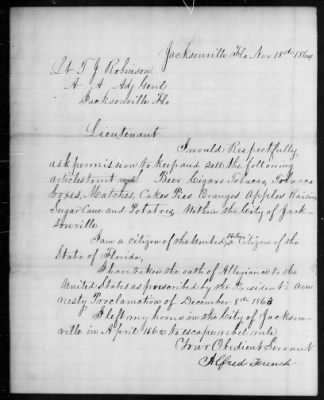 Jacksonville Fla Nov 18th 1864
Lt T. J. Robinson
A A Adj Genl
Jacksonville Fla
Lieutenant
I would Respectfully
ask permission to keep and sell the following
articles to wit Beer Cigars Tobacco, Tobacco
boxes, Matches, Cakes Pies Oranges Apples Raisins
Sugar Cane and Potatoes, Within the City of Jack-
sonville.
I am a citizen of the United States Citizen of the
State of Florida,
I have taken the oath of Allegiance to the
United States as prescribed by the President's am-
nesty Proclamation of December 8th 1863
I left my home in the City of Jackson-
ville in April 1862 to escape rebel rule
Your Obedient Servant
Alfred French